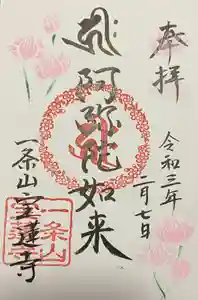 奉拝
令和三年
二月七日
阿弥陀如来
一条山宝蓮寺
一条山